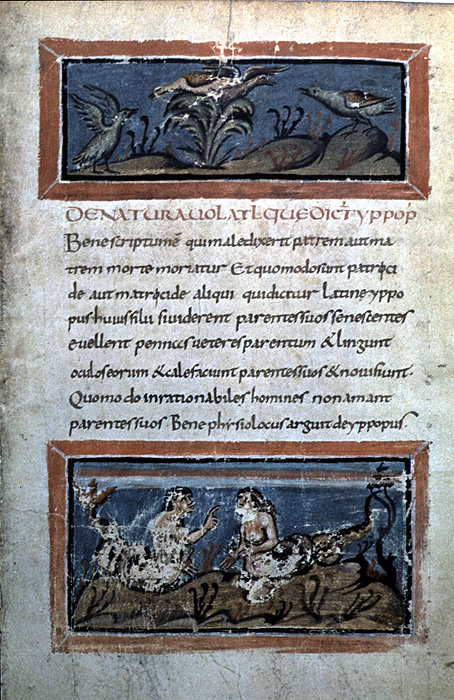 DE NATURA UOLATL QUE DICT YPPOP
Bene scriptum ē qui maledixerit patrem aut ma
trem morte moriatur Et quomodo sunt patrici
de aut matricide aliqui qui dicitur Latine yppo
pus huius filii si uiderent parentes suos senescentes
euellent pennas ueteres parentum & lingunt
oculos eorum & calefaciunt parentes suos & nouis fiunt.
Quomodo inrationabiles homines non amant
parentes suos Bene physiolocus arguit de yppopus.